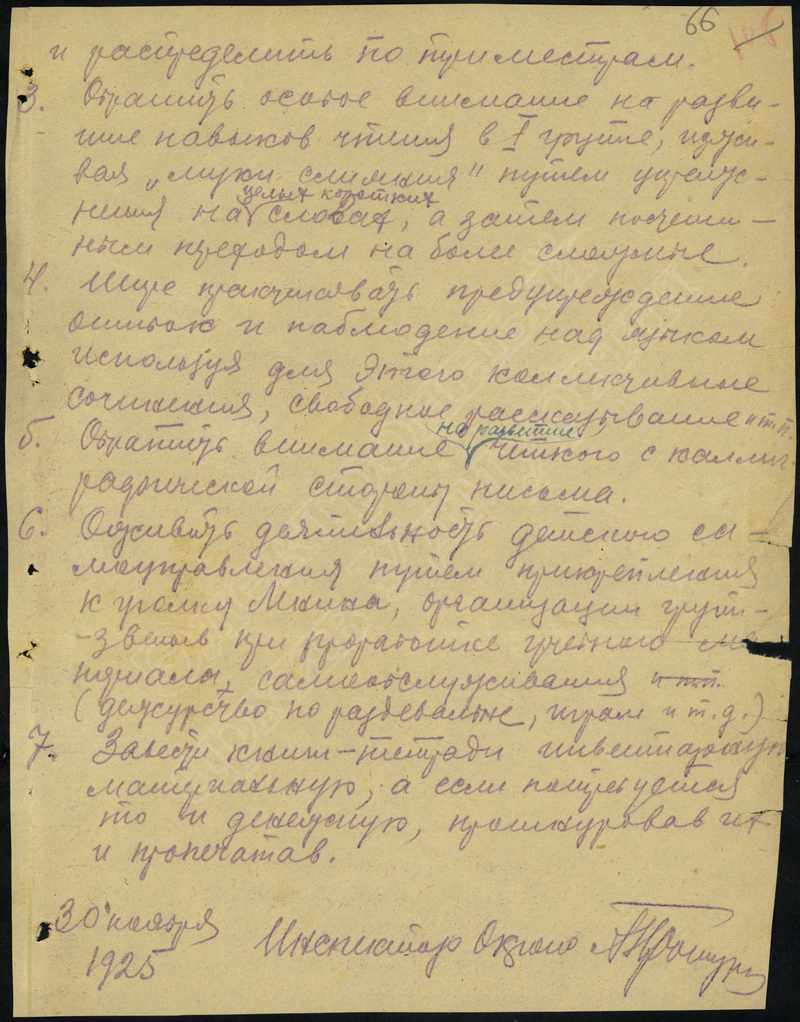 66
и распределить по триместрам.
3. Обратить особое внимание на разви-
тие навыков чтения в I группе,
"муки слияния" путем упраж-
целых коротких
нения на словах, а затем постепен-
ным переходом на более сложные.
4. Шире практиковать предупреждение
ошибок и наблюдение над языком
используя для этого коллективные
сочинения, свободное рассказывание и т.п.
на развитие
5. Обратить внимание четкого с каллиг-
рафической стороны письма.
6. Оживить деятельность детского са-
моуправления путем прикрепления
к организации групп-
-звеньев при проработке учебного ма-
териала, самообслуживания и т.п.
(дежурство по раздевальне, играм и т.д.)
7. Завести книги-тетради инвентарную
материальную, а если потребуется
то и денежную, прошнуровав их
и пропечатав.
30 ноября
1925
Инспектор Окроно